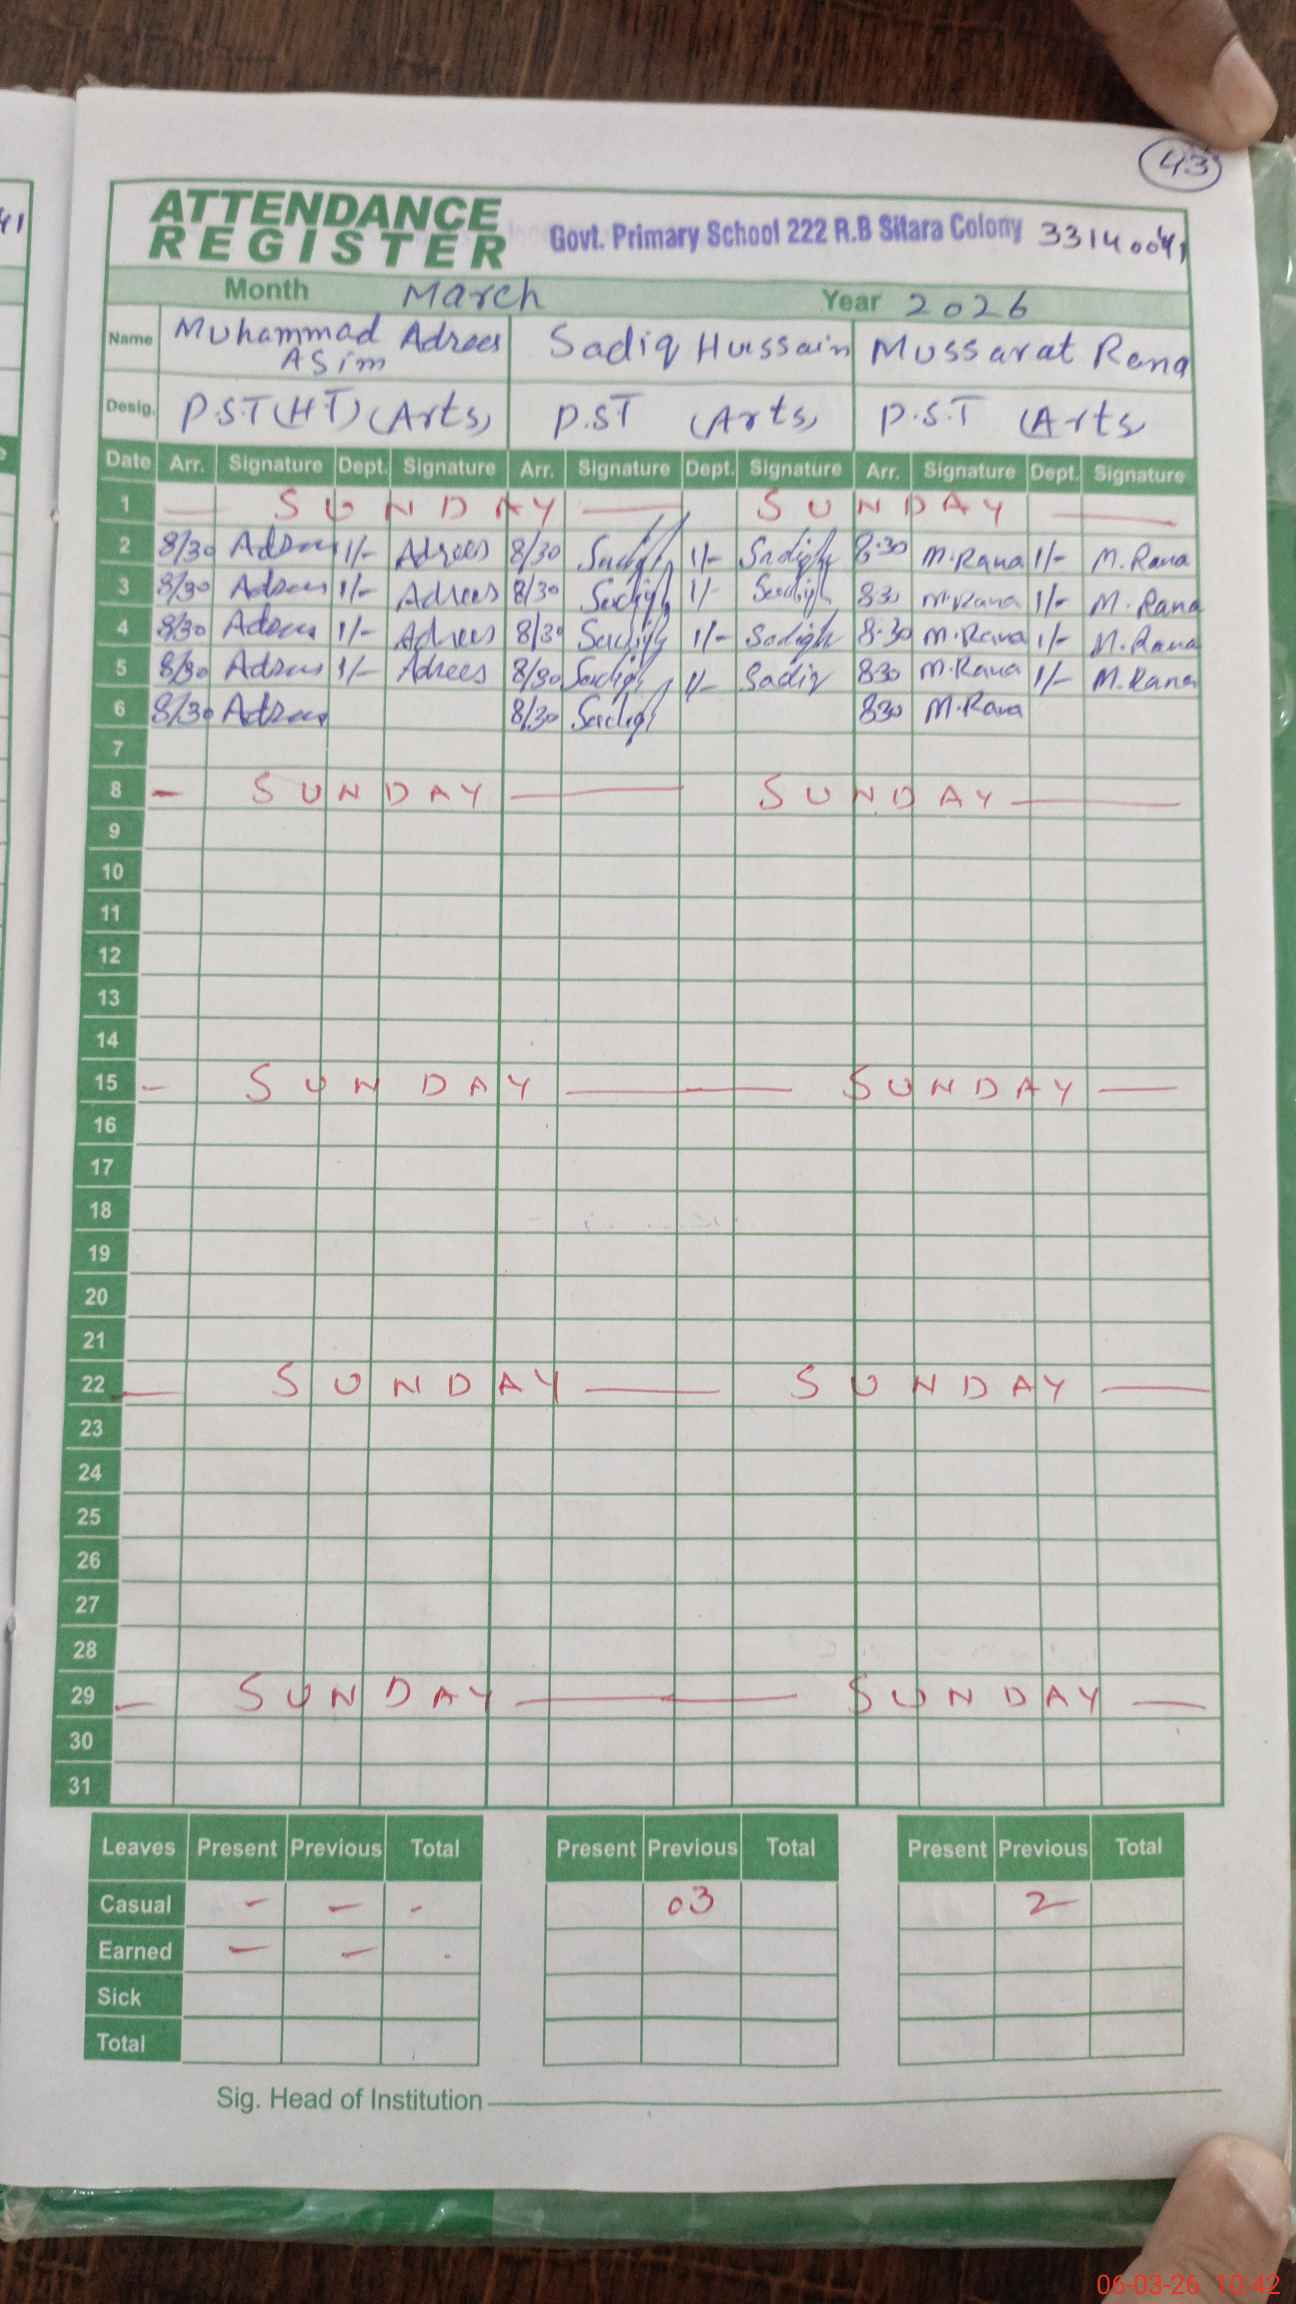 43
41
ATTENDANCE REGISTER
Govt. Primary School 222 R.B Sitara Colony 33140041
Month March Year 2026
Name Muhammad Adrees Asim Sadiq Hussain Mussarat Rana
Desig. P.S.T (H.T) (Arts) P.ST (Arts) P.S.T (Arts)
Date Arr. Signature Dept. Signature Arr. Signature Dept. Signature Arr. Signature Dept. Signature
1 — SUNDAY — SUNDAY —
2 8/30 Adrees 1/- Adrees 8/30 Sadigh 1/- Sadigh 8:30 M.Rana 1/- M.Rana
3 8/30 Adrees 1/- Adrees 8/30 Sadigh 1/- Sadigh 830 M.Rana 1/- M.Rana
4 8/30 Adrees 1/- Adrees 8/30 Sadigh 1/- Sadigh 8:30 M.Rana 1/- M.Rana
5 8/30 Adrees 1/- Adrees 8/30 Sadigh 1/- Sadiq 830 M.Rana 1/- M.Rana
6 8/30 Adrees 8/30 Sadigh 830 M.Rana
7
8 - SUNDAY — SUNDAY —
9
10
11
12
13
14
15 - SUNDAY — SUNDAY —
16
17
18
19
20
21
22 — SUNDAY — SUNDAY —
23
24
25
26
27
28
29 - SUNDAY — SUNDAY —
30
31
Leaves Present Previous Total Present Previous Total Present Previous Total
Casual - - - 03 2
Earned - - .
Sick
Total
Sig. Head of Institution
06-03-26 10:42